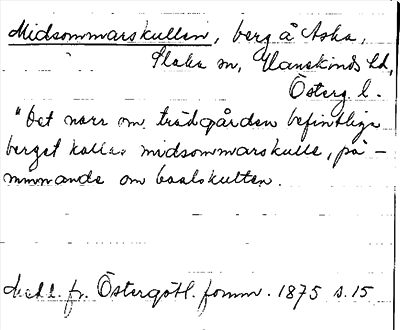 Midsommarskullen, berg å Aska,
Slaka sn, Hanekinds hd,
Österg. l.
"Det norr om trädgården befintliga
berget kallas midsommarskulle, på-
minnande om baalskulten.
Medd. fr. Östergötl. fornm. 1875 s. 15